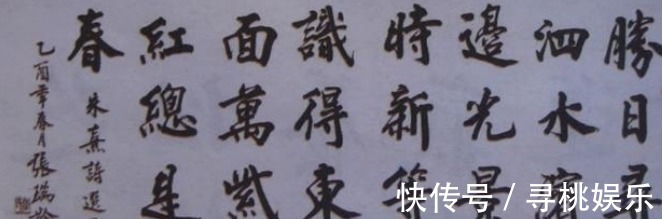 勝日尋
泗水濱
邊光景
時新等
識得東
面萬紫
紅總是
春
朱熹詩選
乙酉年春月張瑞齡
快传号 / 寻桃娱乐